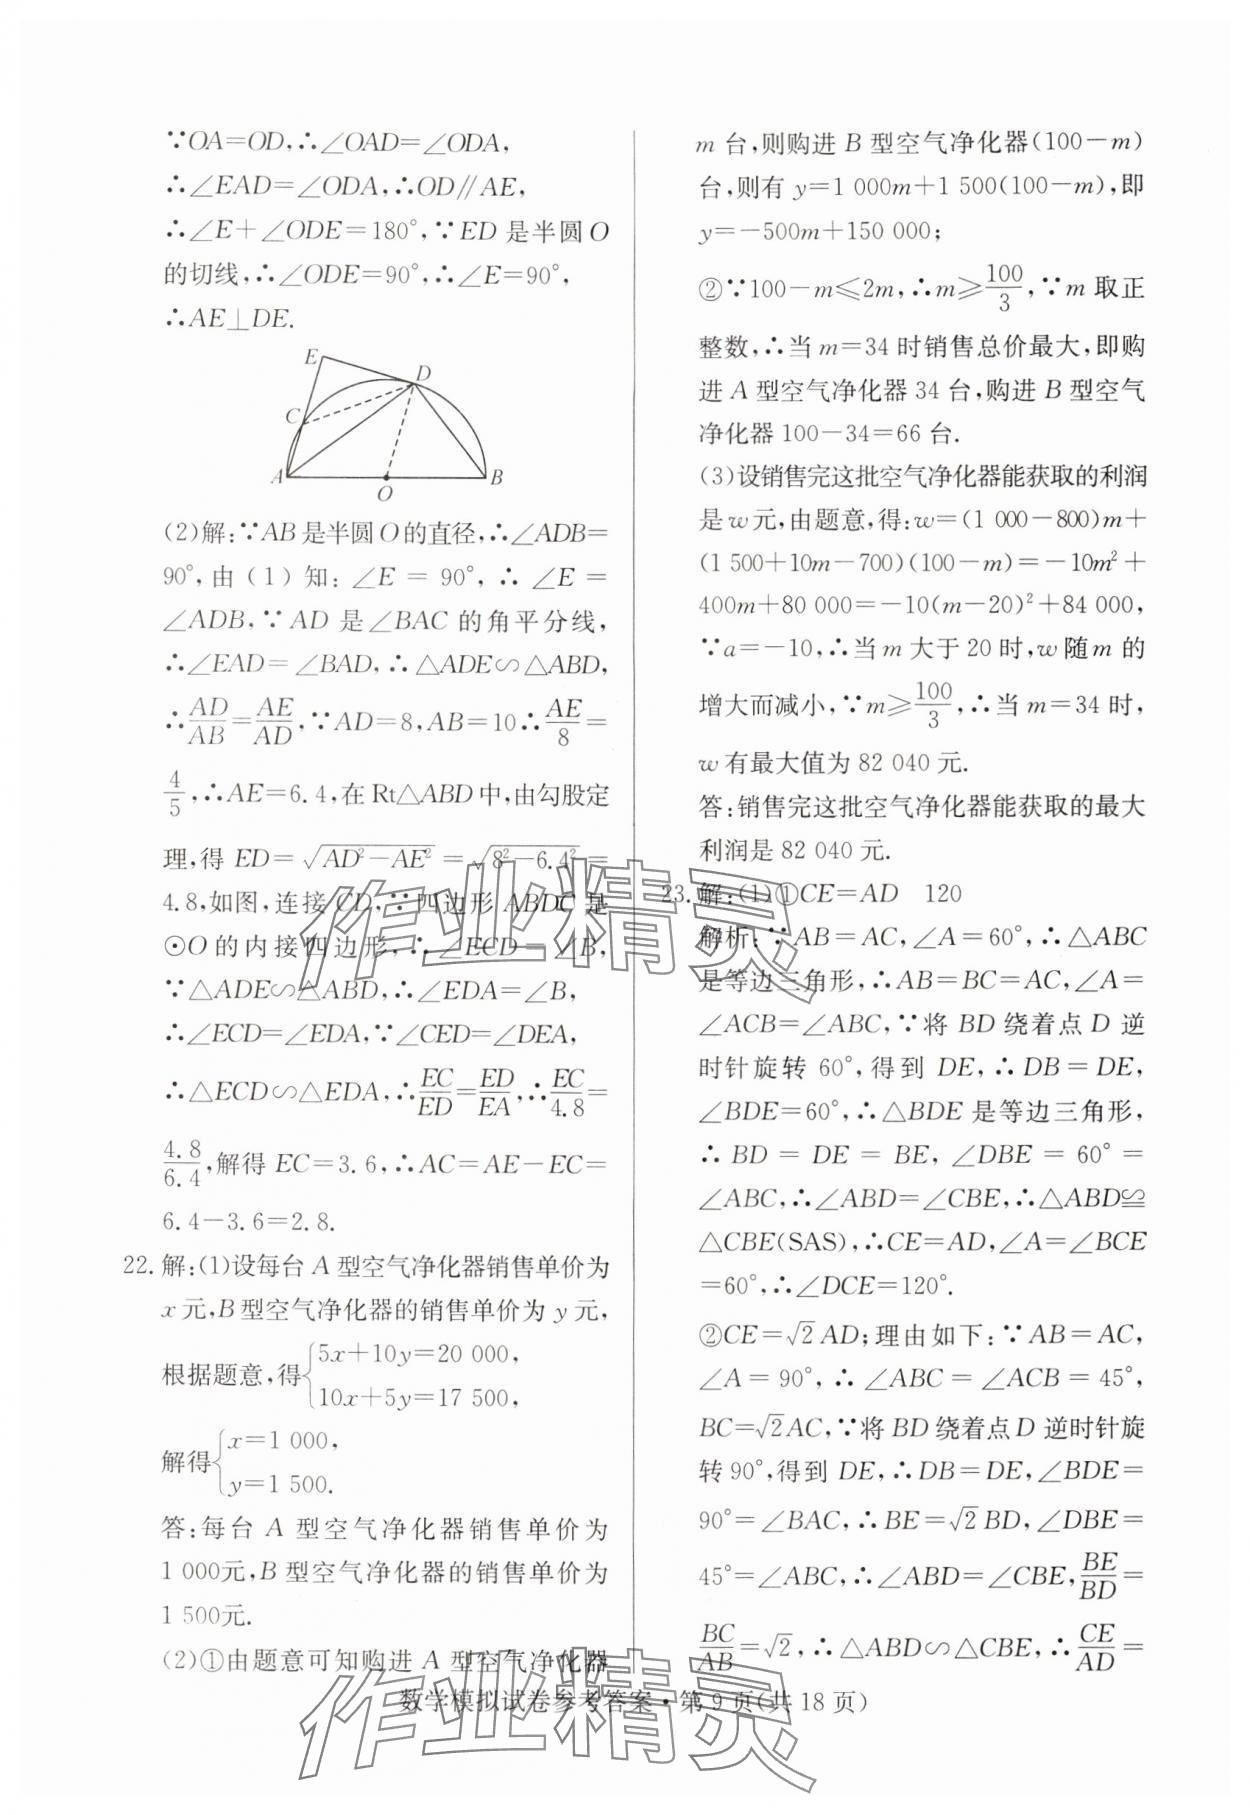 ∵OA=OD,∴∠OAD=∠ODA,
∴∠EAD=∠ODA,∴OD∥AE,
∴∠E+∠ODE=180°,∵ED是半圆O
的切线,∴∠ODE=90°,∴∠E=90°,
∴AE⊥DE.
E
D
C
A
O
B
(2)解:∵AB是半圆O的直径,∴∠ADB=
90°,由(1)知:∠E=90°,∴∠E=
∠ADB,∵AD是∠BAC的角平分线,
∴∠EAD=∠BAD,∴△ADE∽△ABD,
∴AD/AB=AE/AD,∵AD=8,AB=10∴AE/8=
4/5,∴AE=6.4,在Rt△ABD中,由勾股定
理,得ED=√(AD²-AE²)=√(8²-6.4²)=
4.8,如图,连接CD,∵四边形ABDC是
⊙O的内接四边形,∴∠ECD=∠B,
∵△ADE∽△ABD,∴∠EDA=∠B,
∴∠ECD=∠EDA,∵∠CED=∠DEA,
∴△ECD∽△EDA,∴EC/ED=ED/EA,∴EC/4.8=
4.8/6.4,解得EC=3.6,∴AC=AE-EC=
6.4-3.6=2.8.
22.解:(1)设每台A型空气净化器销售单价为
x元,B型空气净化器的销售单价为y元,
根据题意,得{5x+10y=20 000,
10x+5y=17 500,
解得{x=1 000,
y=1 500.
答:每台A型空气净化器销售单价为
1 000元,B型空气净化器的销售单价为
1 500元.
(2)①由题意可知购进A型空气净化器
m台,则购进B型空气净化器(100-m)
台,则有y=1 000m+1 500(100-m),即
y=-500m+150 000;
②∵100-m≤2m,∴m≥100/3,∵m取正
整数,∴当m=34时销售总价最大,即购
进A型空气净化器34台,购进B型空气
净化器100-34=66台.
(3)设销售完这批空气净化器能获取的利润
是w元,由题意,得:w=(1 000-800)m+
(1 500+10m-700)(100-m)=-10m²+
400m+80 000=-10(m-20)²+84 000,
∵a=-10,∴当m大于20时,w随m的
增大而减小,∵m≥100/3,∴当m=34时,
w有最大值为82 040元.
答:销售完这批空气净化器能获取的最大
利润是82 040元.
23.解:(1)①CE=AD 120
解析:∵AB=AC,∠A=60°,∴△ABC
是等边三角形,∴AB=BC=AC,∠A=
∠ACB=∠ABC,∵将BD绕着点D逆
时针旋转60°,得到DE,∴DB=DE,
∠BDE=60°,∴△BDE是等边三角形,
∴BD=DE=BE,∠DBE=60°=
∠ABC,∴∠ABD=∠CBE,∴△ABD≌
△CBE(SAS),∴CE=AD,∠A=∠BCE
=60°,∴∠DCE=120°.
②CE=√2AD;理由如下:∵AB=AC,
∠A=90°,∴∠ABC=∠ACB=45°,
BC=√2AC,∵将BD绕着点D逆时针旋
转90°,得到DE,∴DB=DE,∠BDE=
90°=∠BAC,∴BE=√2BD,∠DBE=
45°=∠ABC,∴∠ABD=∠CBE,BE/BD=
BC/AB=√2,∴△ABD∽△CBE,∴CE/AD=
数学模拟试卷参考答案·第9页(共18页)
作业精灵
作业精灵